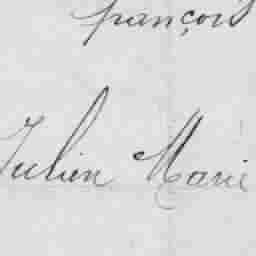 françois
Julien Marie